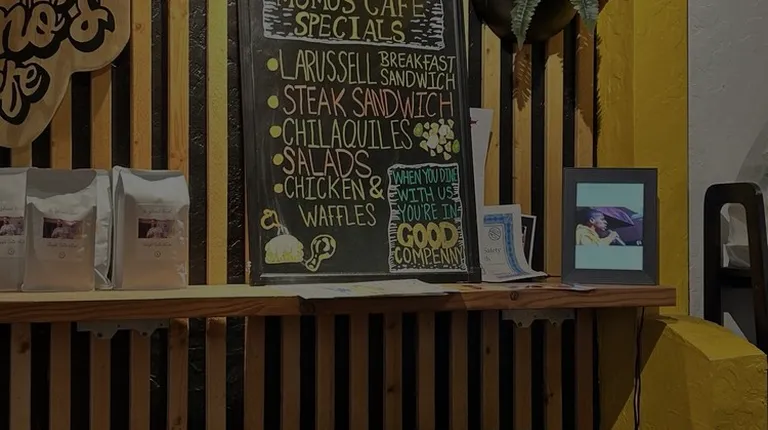 MOMOS CAFE
SPECIALS
LARUSSELL BREAKFAST SANDWICH
STEAK SANDWICH
CHILAQUILES
SALADS
CHICKEN &
WAFFLES
WHEN YOU DINE
WITH US
YOU'RE IN
GOOD
COMPENNY